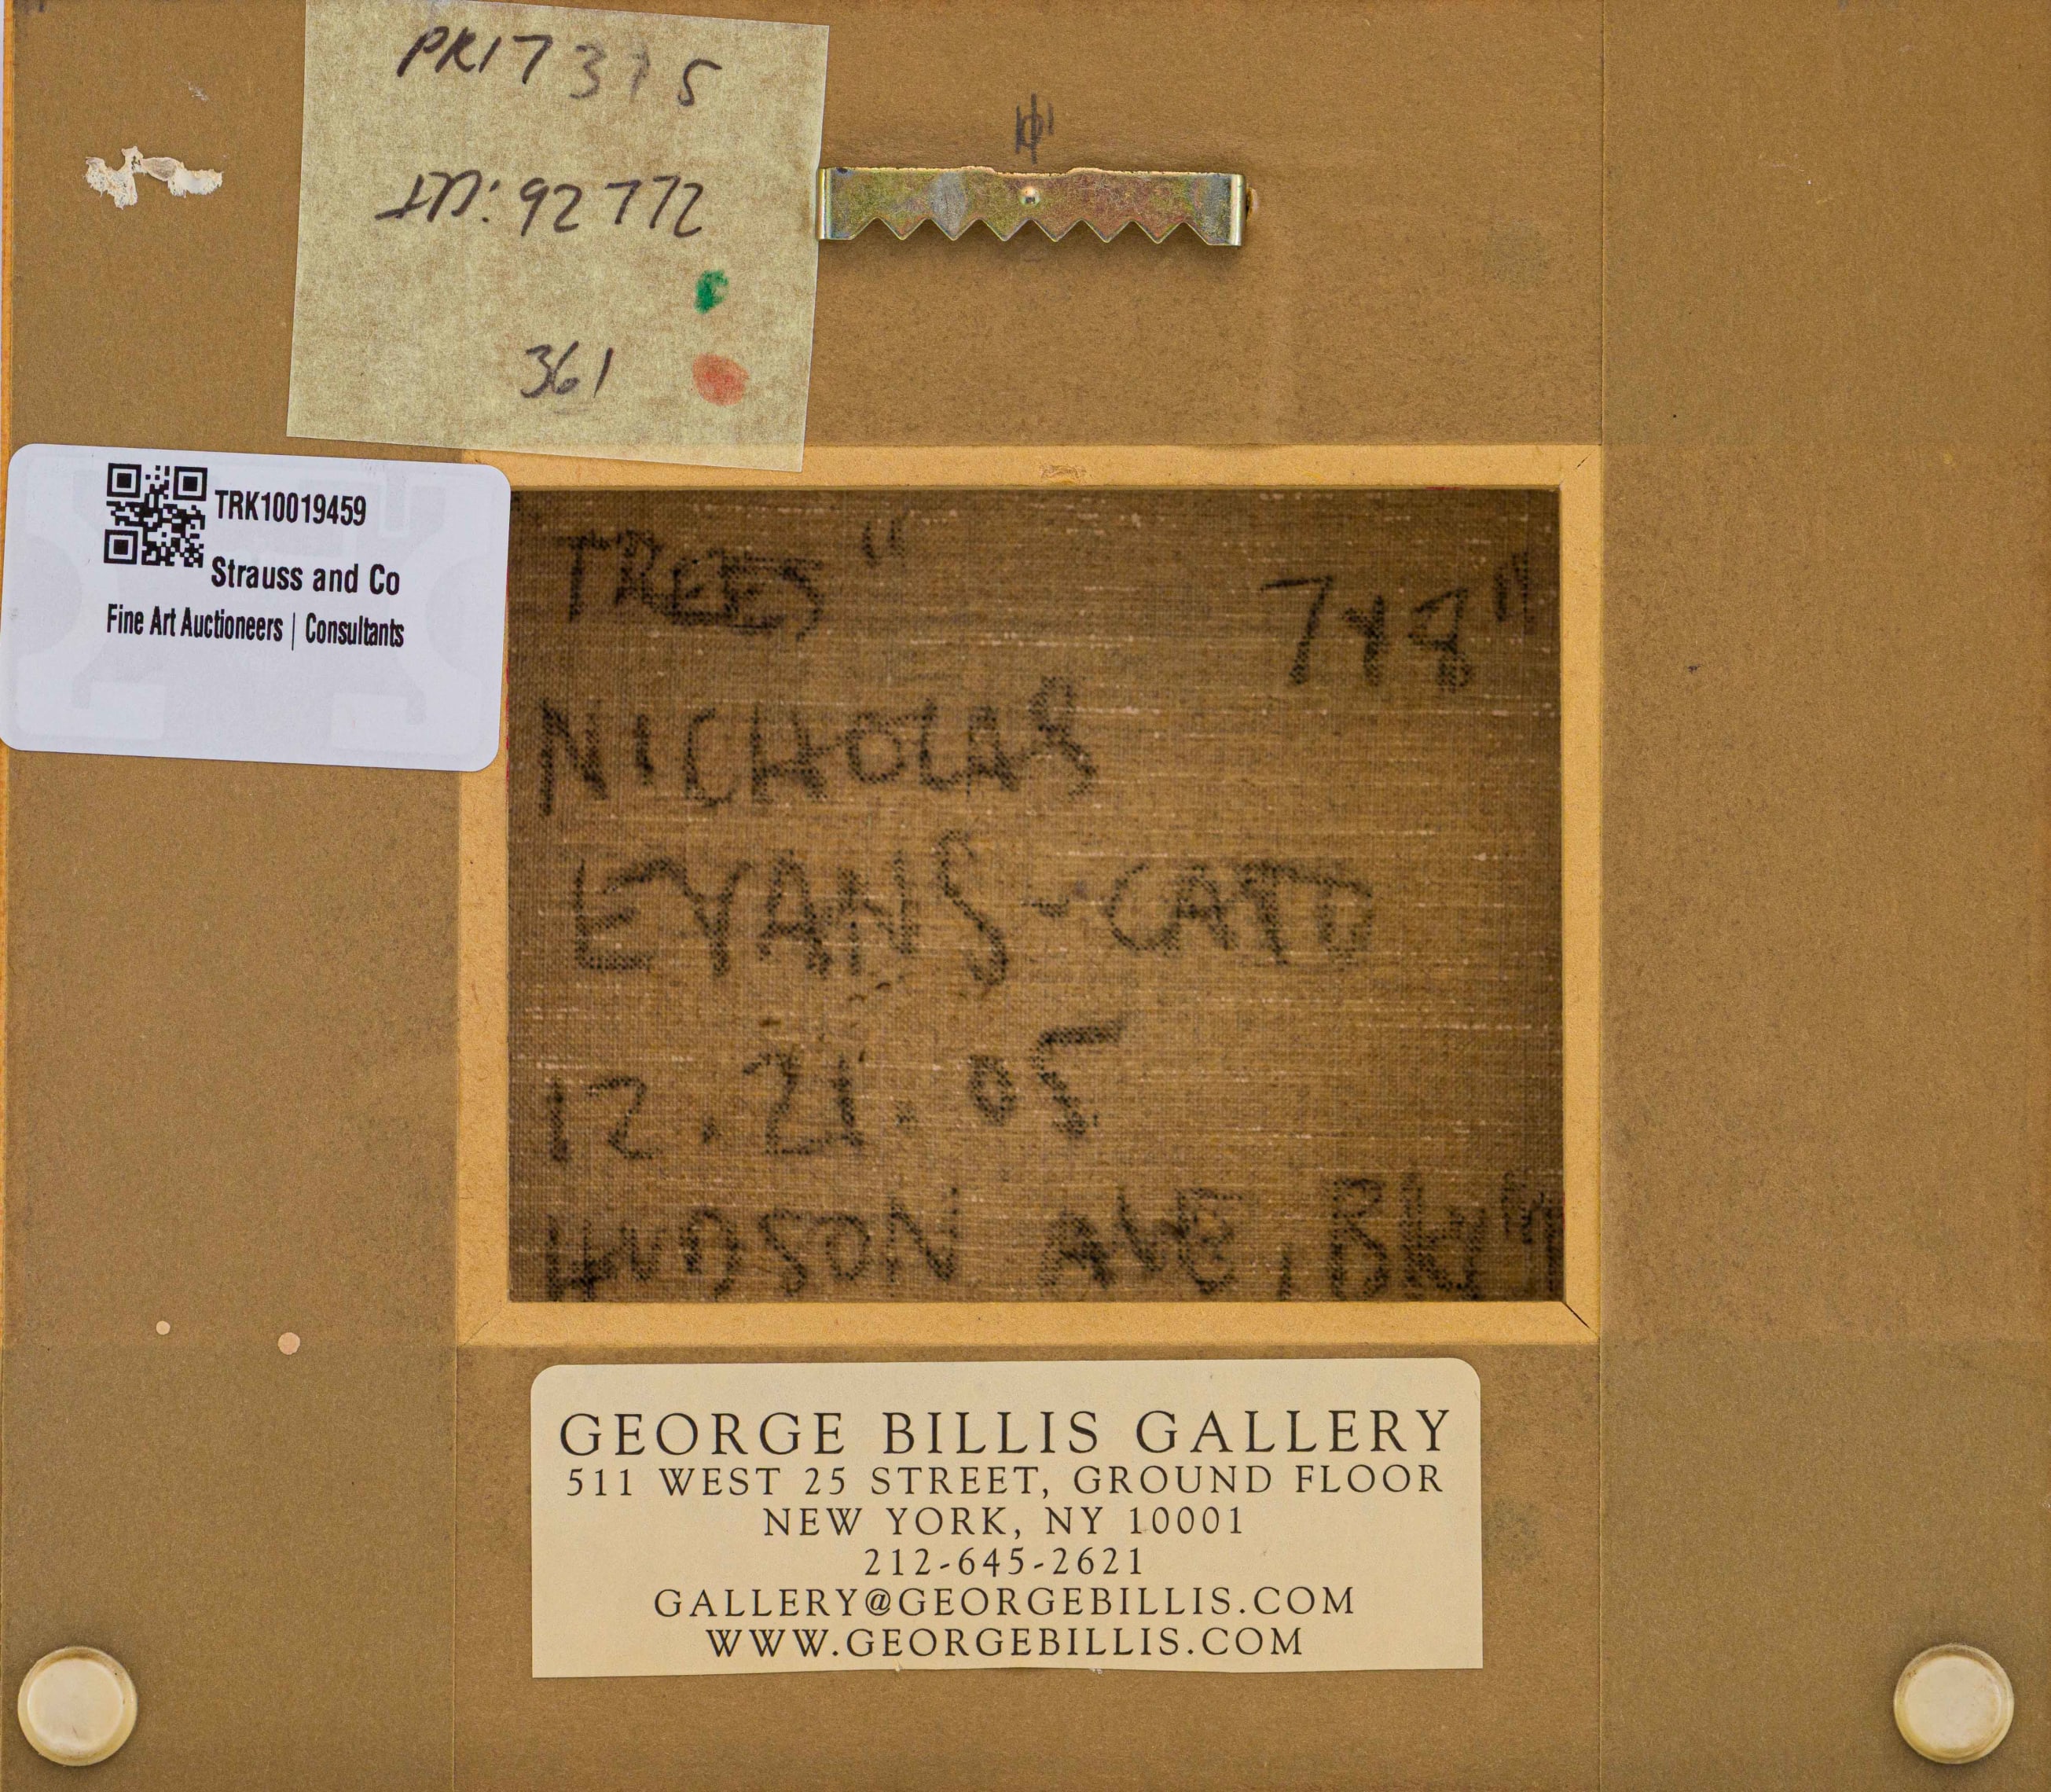 PR17375
ID: 92772
361
TRK10019459
Strauss and Co
Fine Art Auctioneers | Consultants
TREES"
7x8"
NICHOLAS
EVANS-CATO
12.21.05
HUDSON AVE,
GEORGE BILLIS GALLERY
511 WEST 25 STREET, GROUND FLOOR
NEW YORK, NY 10001
212-645-2621
GALLERY@GEORGEBILLIS.COM
WWW.GEORGEBILLIS.COM